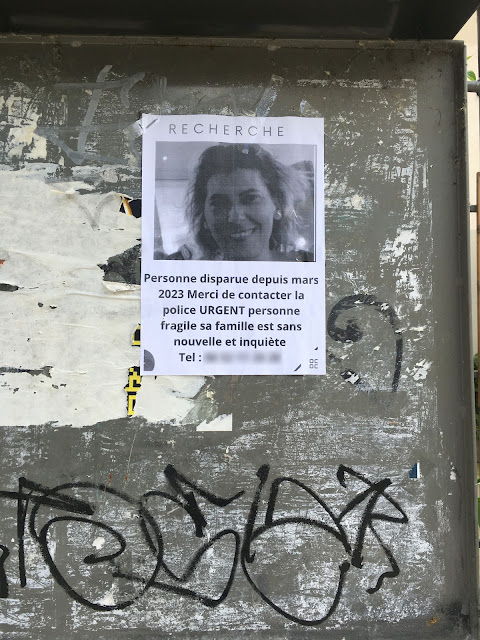 RECHERCHE
Personne disparue depuis mars
2023 Merci de contacter la
police URGENT personne
fragile sa famille est sans
nouvelle et inquiète
Tel :